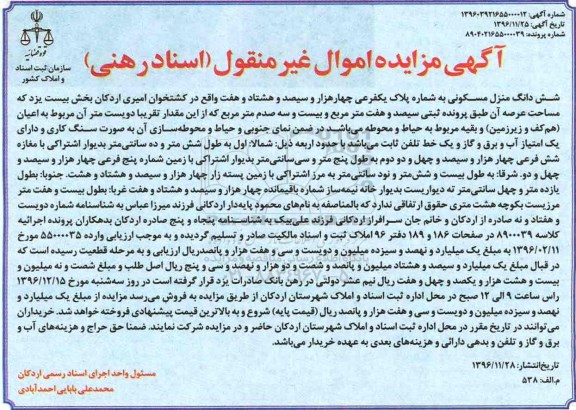 شماره آگهی: ۱۳۹۶۰۳۹۲۱۶۵۵۰۰۰۰۱۲
تاریخ آگهی: ۱۳۹۶/۱۱/۲۵
شماره پرونده: ۸۹۰۴۰۲۱۶۵۵۰۰۰۰۳۹
قوه قضائیه
سازمان ثبت اسناد
و املاک کشور
آگهی مزایده اموال غیر منقول (اسناد رهنی)
شش دانگ منزل مسکونی به شماره پلاک یکفرعی چهارهزار و سیصد و هشتاد و هفت واقع در کشتخوان امیری اردکان بخش بیست یزد که
مساحت عرصه آن طبق پرونده ثبتی سیصد و هفت متر مربع و بیست و سه صدم متر مربع که از این مقدار تقریبا دویست متر آن مربوط به اعیان
(هم‌کف و زیرزمین) و بقیه مربوط به حیاط و محوطه می‌باشد و در ضمن نمای جنوبی و حیاط و محوطه‌سازی آن به صورت سنگ کاری و دارای
یک امتیاز آب و برق و گاز و یک خط تلفن ثابت می‌باشد با حدود اربعه ذیل: شمالا: اول به طول شش متر و ده سانتی‌متر بدیوار اشتراکی با مغازه
شش فرعی چهار هزار و سیصد و چهل و دو دوم به طول پنج متر و سی‌سانتی‌متر بدیوار اشتراکی با زمین شماره پنج فرعی چهار هزار و سیصد و
چهل و دو. شرقا: به طول بیست و شش‌متر و نود سانتی‌متر به مرز اشتراکی با زمین پسته زار چهار هزار و سیصد و هشتاد و هشت. جنوبا: بطول
یازده متر و چهل سانتی‌متر ته دیواریست بدیوار خانه نیمه‌ساز شماره باقیمانده چهارهزار و سیصد و هشتاد و هفت غربا: بطول بیست و هفت متر
مرزیست بکوچه هشت متری حقوق ارتفاقی ندارد که بالمناصفه به نام‌های محمود پایه‌دار اردکانی فرزند میرزا عباس به شناسنامه شماره دویست
و هفتاد و نه صادره از اردکان و خانم جان سرافراز اردکانی فرزند علی‌بیک به شناسنامه پنجاه و پنج صادره اردکان بدهکاران پرونده اجرائیه
کلاسه ۸۹۰۰۰۳۹ در صفحات ۱۸۶ و ۱۸۹ دفتر ۹۶ املاک ثبت و اسناد مالکیت صادر و تسلیم گردیده و به موجب ارزیابی وارده ۵۵۰۰۰۰۳۵ مورخ
۱۳۹۶/۰۲/۱۱ به مبلغ یک میلیارد و نهصد و سیزده میلیون و دویست و سی و هفت هزار و پانصدریال ارزیابی و به مرحله قطعیت رسیده است که
در قبال مبلغ یک میلیارد و سیصد و هشتاد میلیون و پانصد و شصت و دو هزار و نهصد و سی و پنج ریال اصل طلب و مبلغ شصت و نه میلیون و
بیست و هشت هزار و یکصد و چهل و هفت ریال نیم عشر دولتی در رهن بانک صادرات یزد قرار گرفته است در روز سه‌شنبه مورخ ۱۳۹۶/۱۲/۱۵
راس ساعت ۹ الی ۱۲ صبح در محل اداره ثبت اسناد و املاک شهرستان اردکان از طریق مزایده به فروش می‌رسد مزایده از مبلغ یک میلیارد و
نهصد و سیزده میلیون و دویست و سی و هفت هزار و پانصد ریال (قیمت پایه) شروع و به بالاترین قیمت پیشنهادی فروخته خواهد شد. خریداران
می‌توانند در تاریخ مقرر در محل اداره ثبت اسناد و املاک شهرستان اردکان حاضر و در مزایده شرکت نمایند. ضمنا حق حراج و هزینه‌های آب و
برق و گاز و تلفن و بدهی دارائی و هزینه‌های بعدی به عهده خریدار می‌باشد.
تاریخ‌انتشار: ۱۳۹۶/۱۱/۲۸
م.الف: ۵۳۸
مسئول واحد اجرای اسناد رسمی اردکان
محمدعلی بابایی احمدآبادی